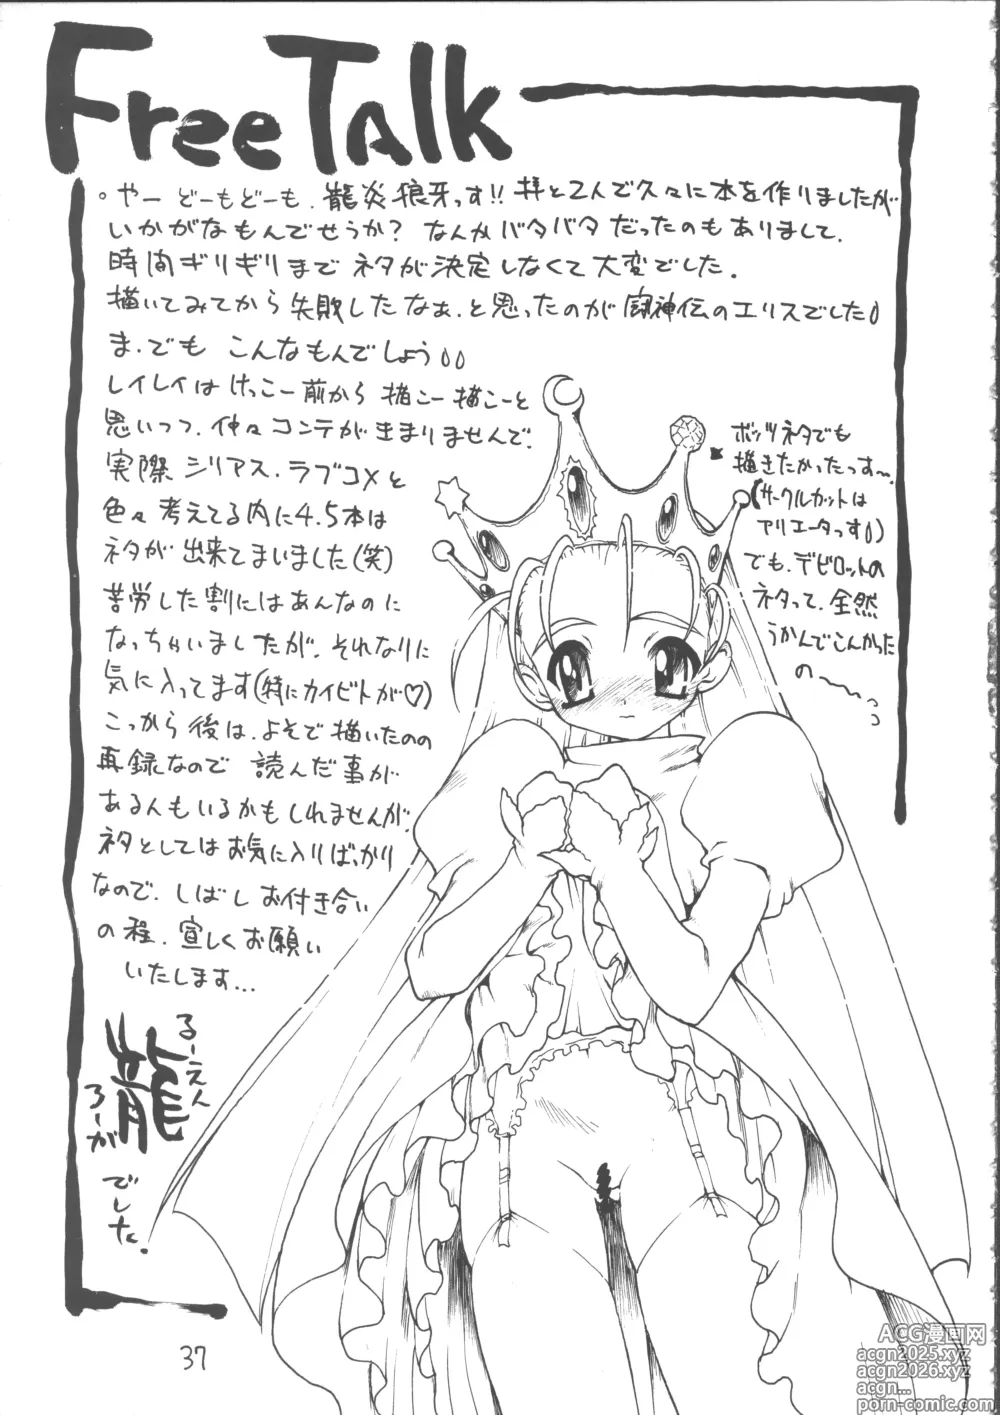 Free Talk
。やー どーもどーも、龍炎狼牙っす!! 拝と2人で久々に本を作りましたが
いかがなもんでせうか? なんかバタバタだったのもありまして、
時間ギリギリまで ネタが決定しなくて大変でした。
描いてみてから失敗したなぁ、と思ったのが闘神伝のエリスでした
ま、でも こんなもんでしょう
レイレイはけっこー前から 描こー描こーと
思いつつ、仲々コンテがきまりませんで、
実際 シリアス、ラブコメと
色々考えてる内に4.5本は
ネタが出来てまいました(笑)
苦労した割にはあんなのに
なっちゃいましたが、それなりに
気に入ってます(特にカイビトが♡)
こっから後は、よそで描いたのの
再録なので 読んだ事が
あるんもいるかもしれませんが、
ネタとしてはお気に入りばっかり
なので、しばしお付き合い
の程、宜しくお願い
いたします…
るーえん
龍
ろーが
でした。
ボッツネタでも
描きたかったっす〜、
(サークルカットは
アリエータっす)
でも、デビロットの
ネタって、全然
うかんでこんかった
の〜
37
ACG漫画网
acgn2025.xyz
acgn2026.xyz
acgn...
porn-comic.com